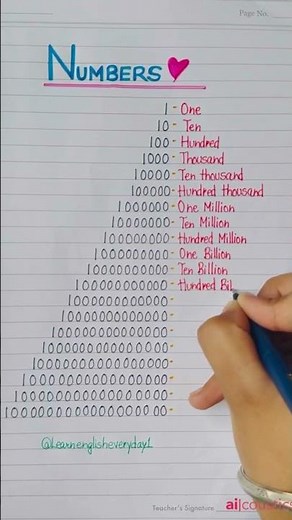 Page No.
NUMBERS
1 - One
10 - Ten
100 - Hundred
1000 - Thousand
10000 - Ten thousand
100000 - Hundred thousand
1000000 - One Million
10000000 - Ten Million
100000000 - Hundred Million
1000000000 - One Billion
10000000000 - Ten Billion
100000000000 - Hundred Bil
1000000000000 -
10000000000000 -
100000000000000 -
1000000000000000 -
10000000000000000 -
100000000000000000 -
1000000000000000000 -
10000000000000000000 -
@Learnenglisheveryday1
Teacher's Signature